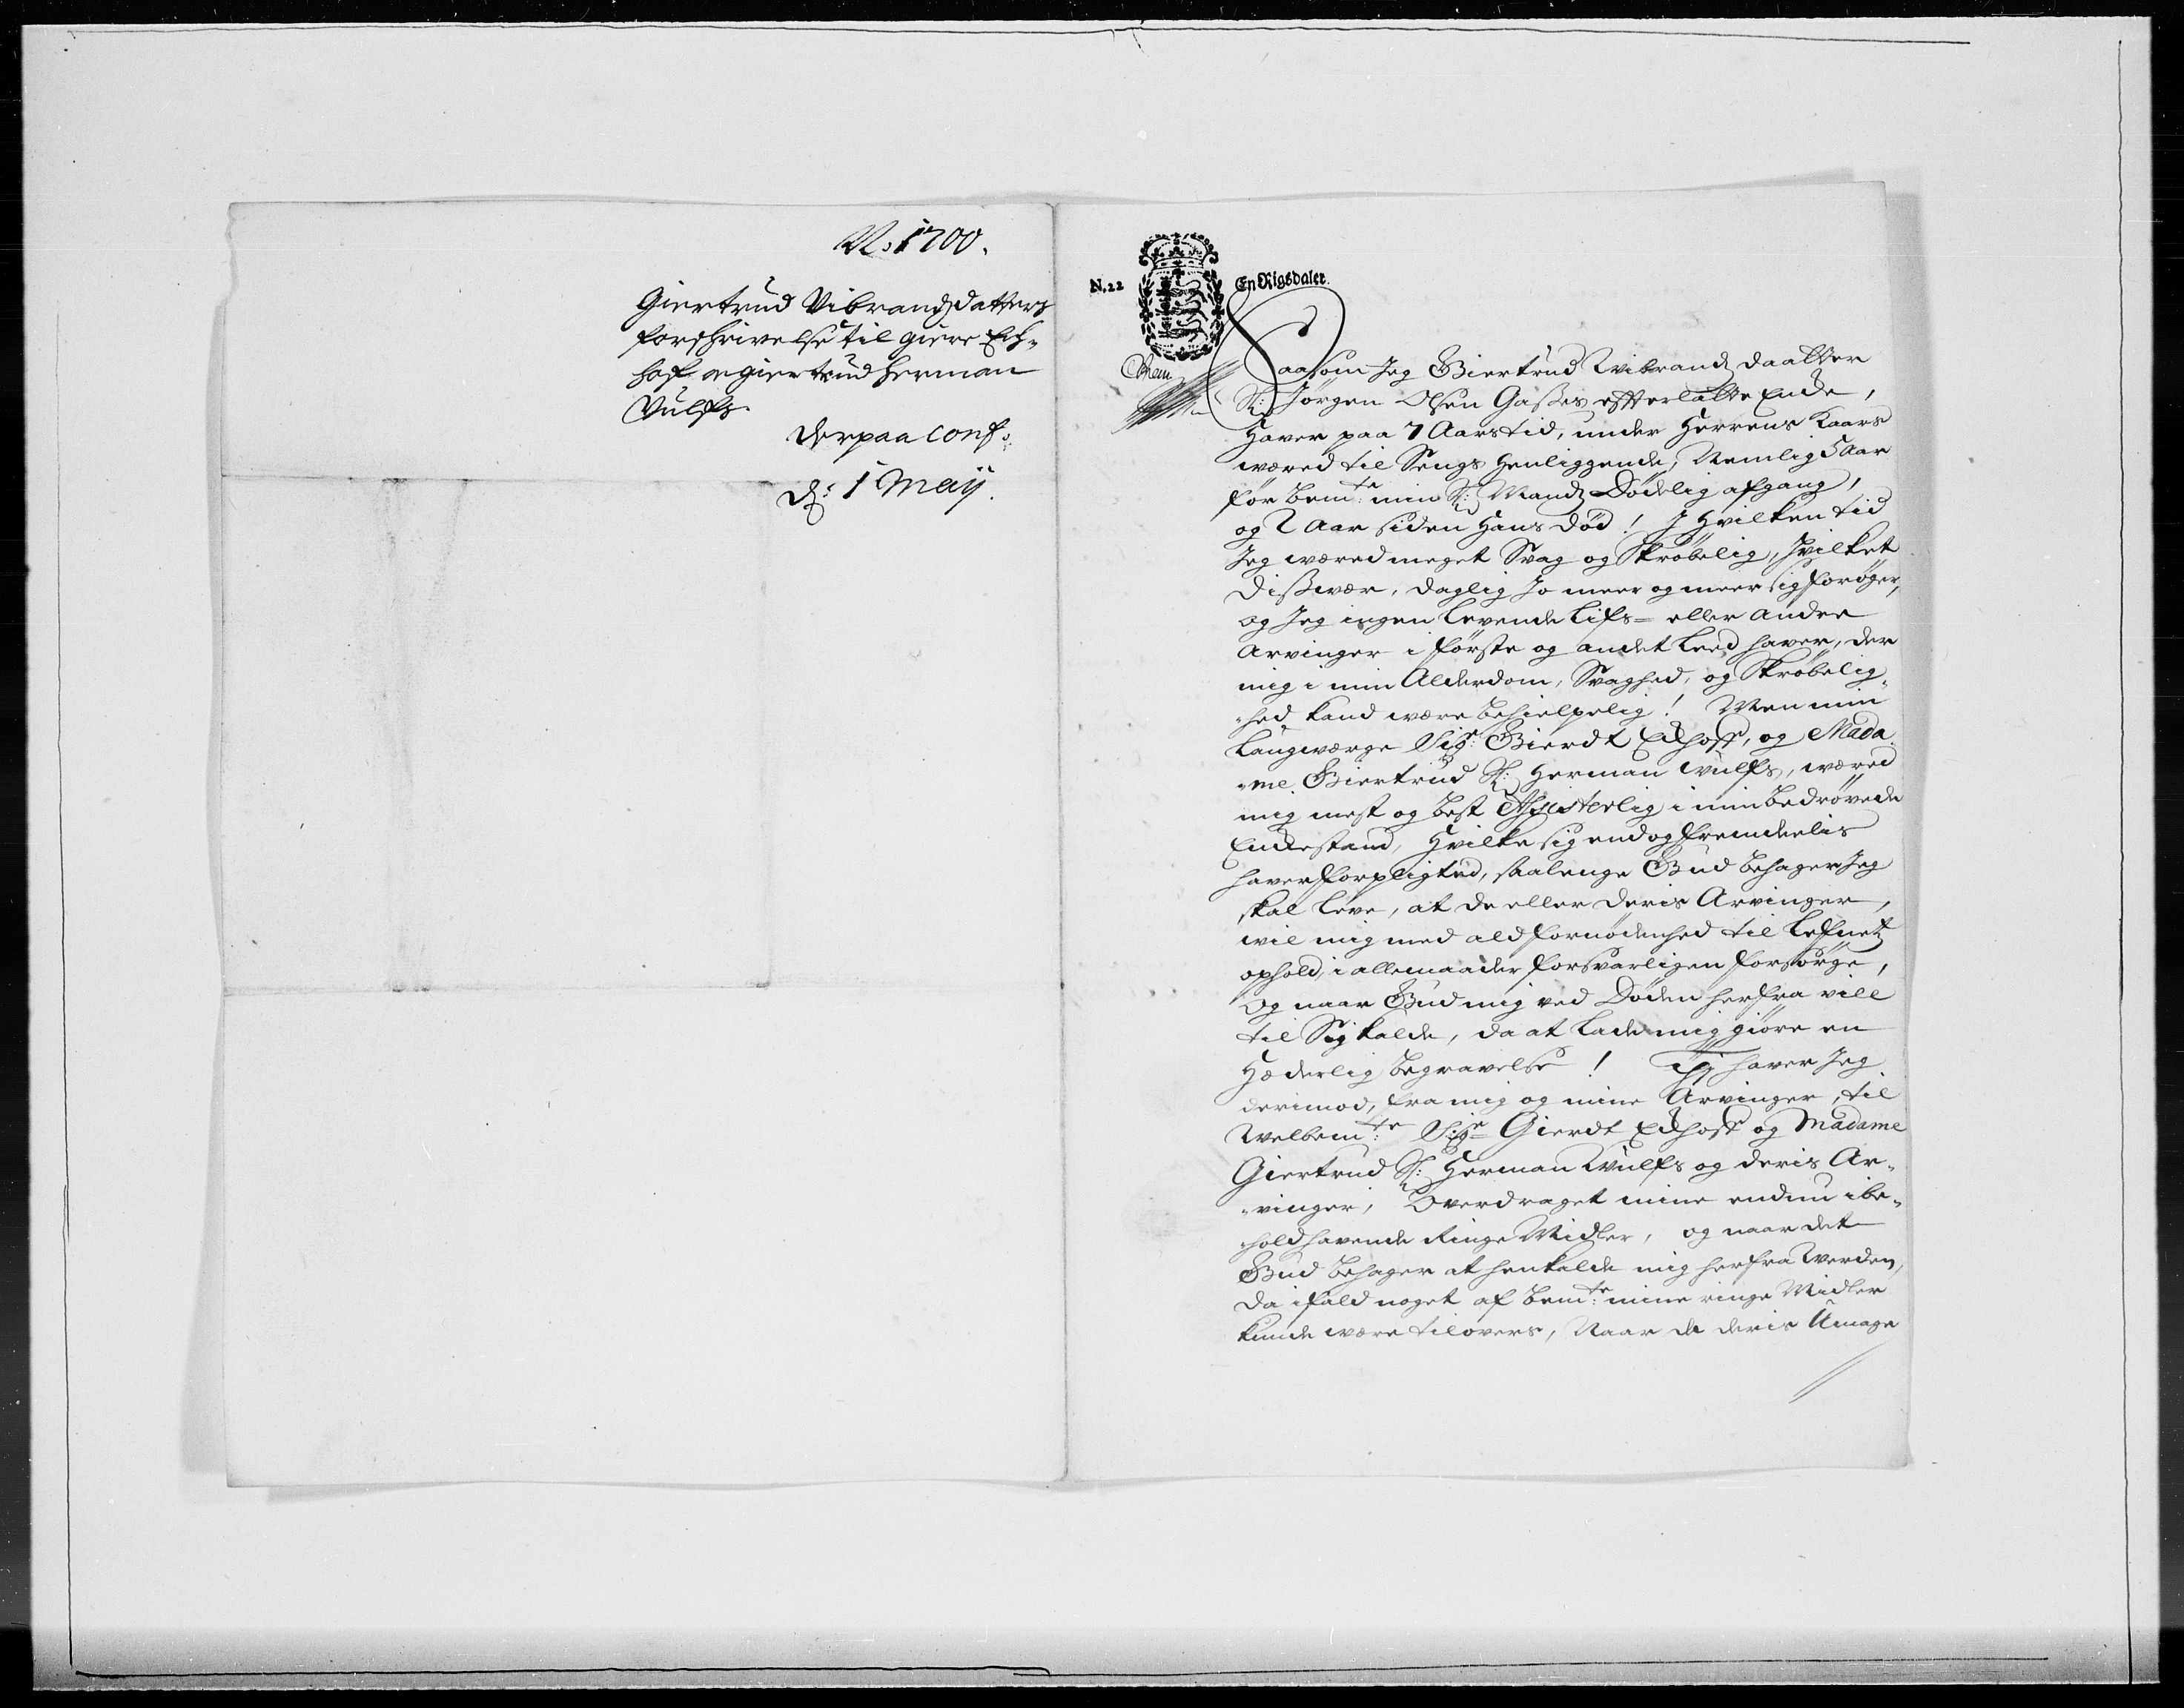 N: 1700.
Giertrud Vibrandsdatters
forskrivelse til giere Eck¬
hof og giertrud Herman
Vulfs.
derpaa conf:
d: 1 Maij.
N. 22 En Rigsdaler.
Saasom Jeg Giertrud Wibrands daatter
Sl: Jørgen Olsen Gasses efterlatte Encke,
Haver paa 7 Aarstid, under Herrens Kaars
wæred til Sengs henliggende, Nemlig 5 Aar
før bemte: min Sl: Mands Dødelig afgang,
og 2 Aar siden Hans død! J Hvilken tid
Jeg wæred meget Svag og Skrøbelig, Hvilket
disswær, daglig Jo meer og meer sig forøger,
og Jeg ingen levende Lifs= eller andre
Arvinger i første og andet leed haver, der
mig i min Alderdom, Svaghed, og Skrøbelig¬
hed kand være behielpelig! Men min
Laugværge Sigr: Gierdt Eckhoff, og Mada¬
me Giertrud Sl: Herman Wulfs, wæred
mig mest og best Assisterlig i min bedrøvede
Enckestand, Hvilke sig endog fremdeelis
haver forpligted, saalenge Gud behager Jeg
skal leve, at de eller deris Arvinger,
wil mig med ald fornødenhed til Lefnets
ophold, i allemaader forsvarligen forsørge,
Og naar Gud mig ved Døden herfra vill
til Sig kalde, da at lade mig giøre en
Hæderlig begravelse! Thj haver Jeg
derimod, fra mig og mine Arvinger, til
Welbemte: Sigr Gierdt Eckhoff og Madame
Giertrud Sl: Herman Wulfs og deris Ar¬
vinger, Overdraget mine endnu ibe¬
holdhavende Ringe Midler, og naar det
Gud behager at henkalde mig herfra Werden,
da ifald noget af bemte: mine ringe Midler
kunde være tilovers, Naar de deris Umage